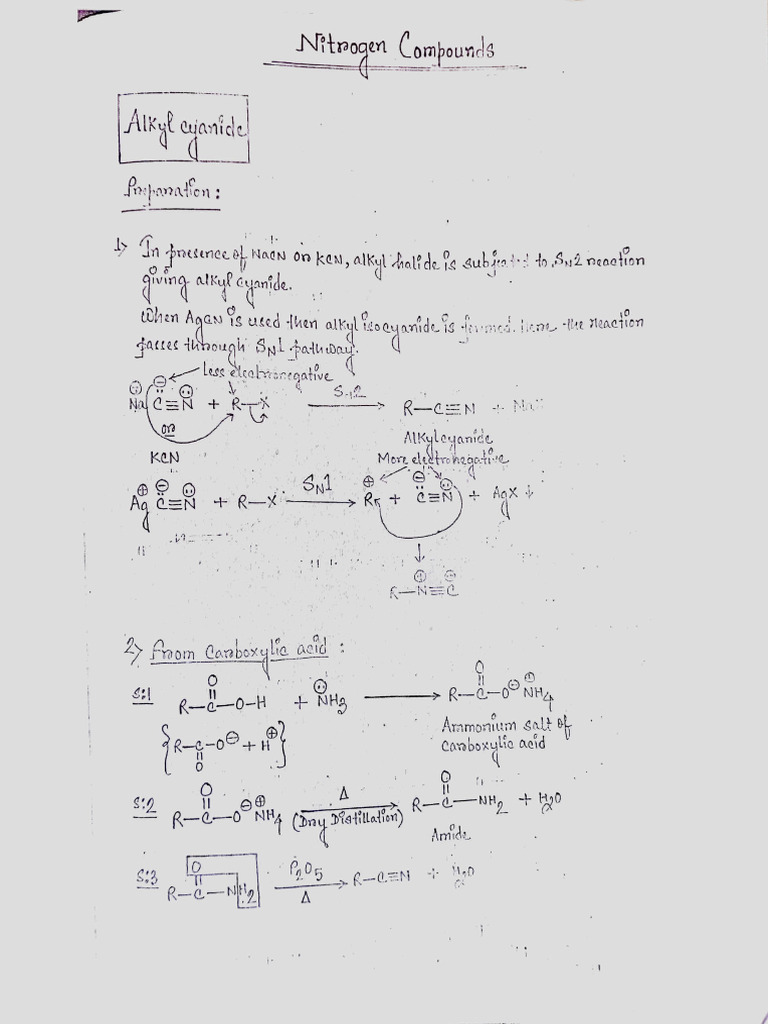 Nitrogen Compounds
Alkyl cyanide
Preparation :
1) In presence of NaCN or KCN, alkyl halide is subjected to SN2 reaction
giving alkyl cyanide.
When AgCN is used then alkyl isocyanide is formed. Here the reaction
passes through SN1 pathway.
Less electronegative
Na⊕ C⊖≡N + R—X SN2 → R—C≡N +
or
KCN
Alkylcyanide
More electronegative
Ag⊕ C⊖≡N + R—X SN1 → R⊕ + C⊖≡N + AgX ↓
↓
R—N⊕≡C⊖
2) From Carboxylic acid :
S:1 R—C(=O)—O—H + NH3 → R—C(=O)—O⊖ NH4⊕
{R—C(=O)—O⊖ + H⊕}
Ammonium salt of
carboxylic acid
S:2 R—C(=O)—O⊖ NH4⊕ Δ (Dry Distillation) → R—C(=O)—NH2 + H2O
Amide
S:3 R—C(=O)—NH2 P2O5 Δ → R—C≡N + H2O